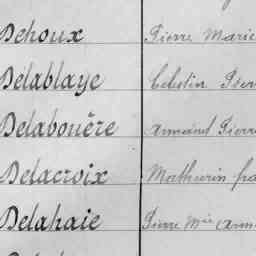 Dehoux Pierre Marie
Délablaye Célestin Pier
Delabouëre Armand Pierre
Delacroix Mathurin
Delahaie Pierre Mie Arm